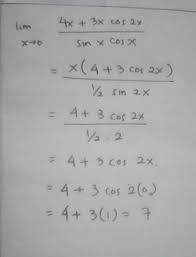 lim x→0 (4x + 3x cos 2x) / (sin x cos x)
= x(4 + 3 cos 2x) / (1/2 sin 2x)
= (4 + 3 cos 2x) / (1/2 . 2)
= 4 + 3 cos 2x.
= 4 + 3 cos 2(0)
= 4 + 3(1) = 7